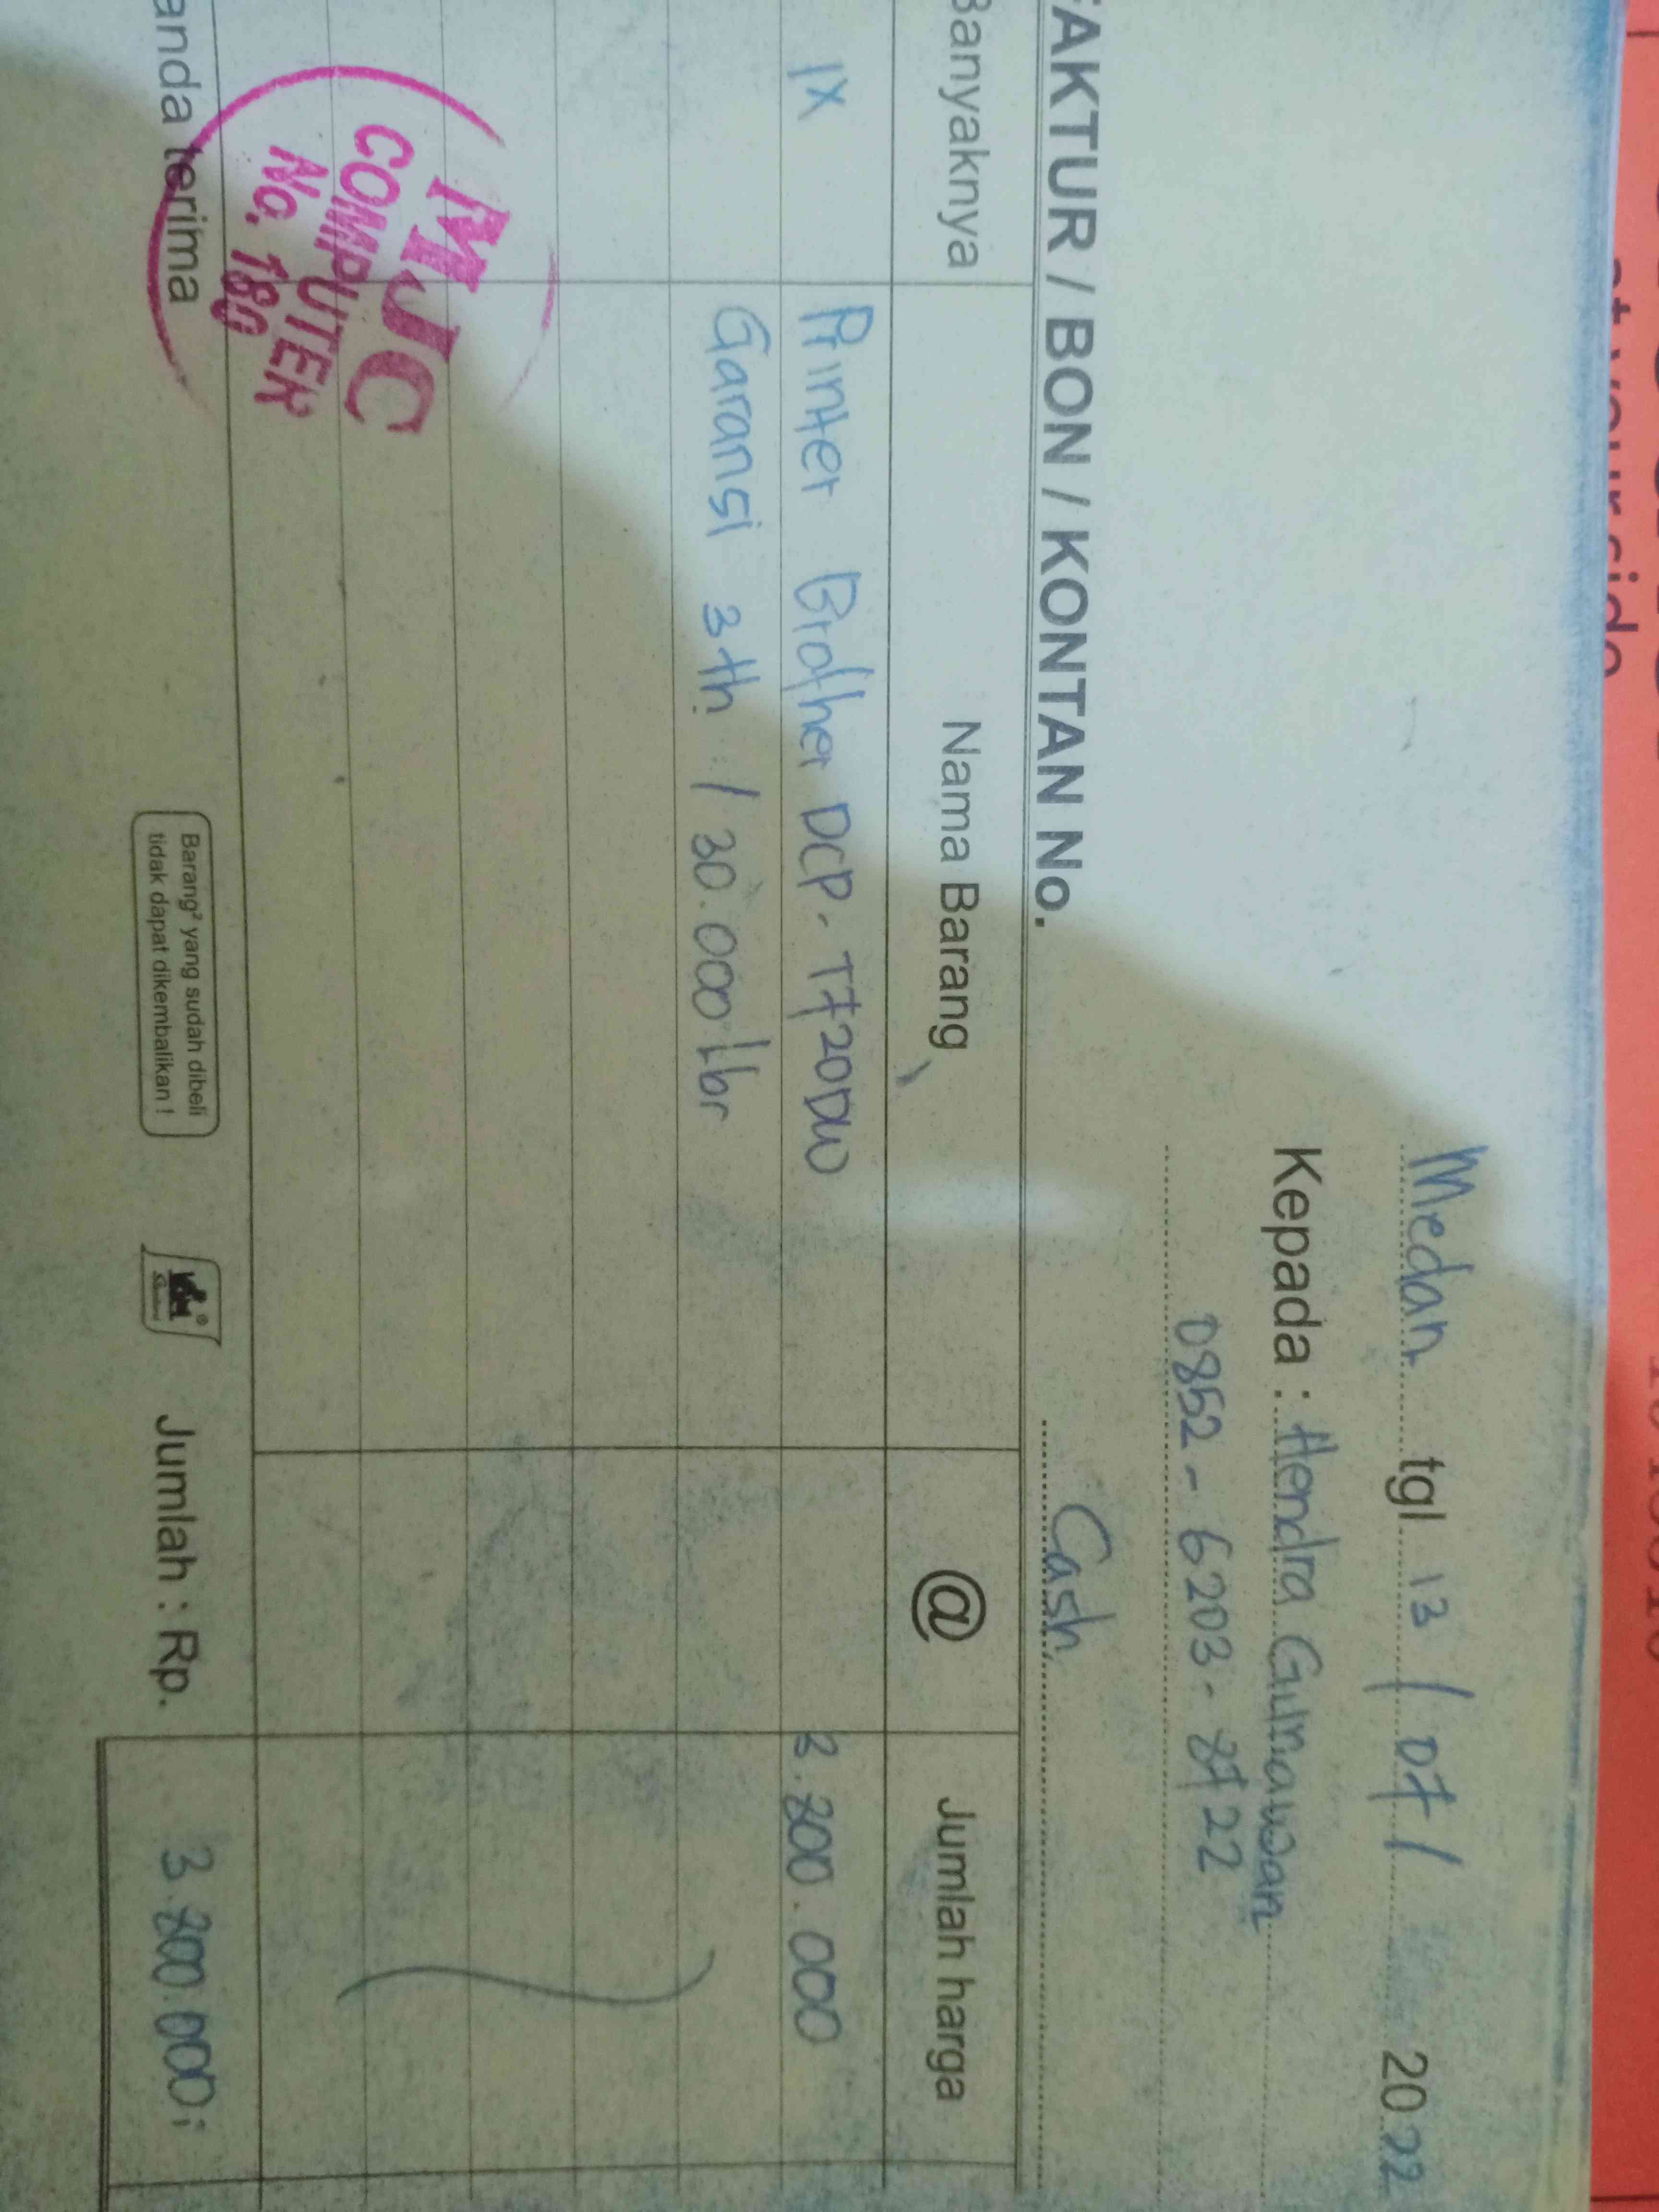 Medan tgl 13 / 07 / 2022
Kepada : Hendra Gunawan
0852 - 6203 - 8722
FAKTUR / BON / KONTAN No. Cash
Banyaknya Nama Barang @ Jumlah harga
1X Printer Brother DCP - T720DW 3.200.000
Garansi 3th / 30.000 lbr
MJC
COMPUTER
No. 180
anda terima
Barang² yang sudah dibeli
tidak dapat dikembalikan !
Jumlah : Rp. 3.200.000,-
at your side